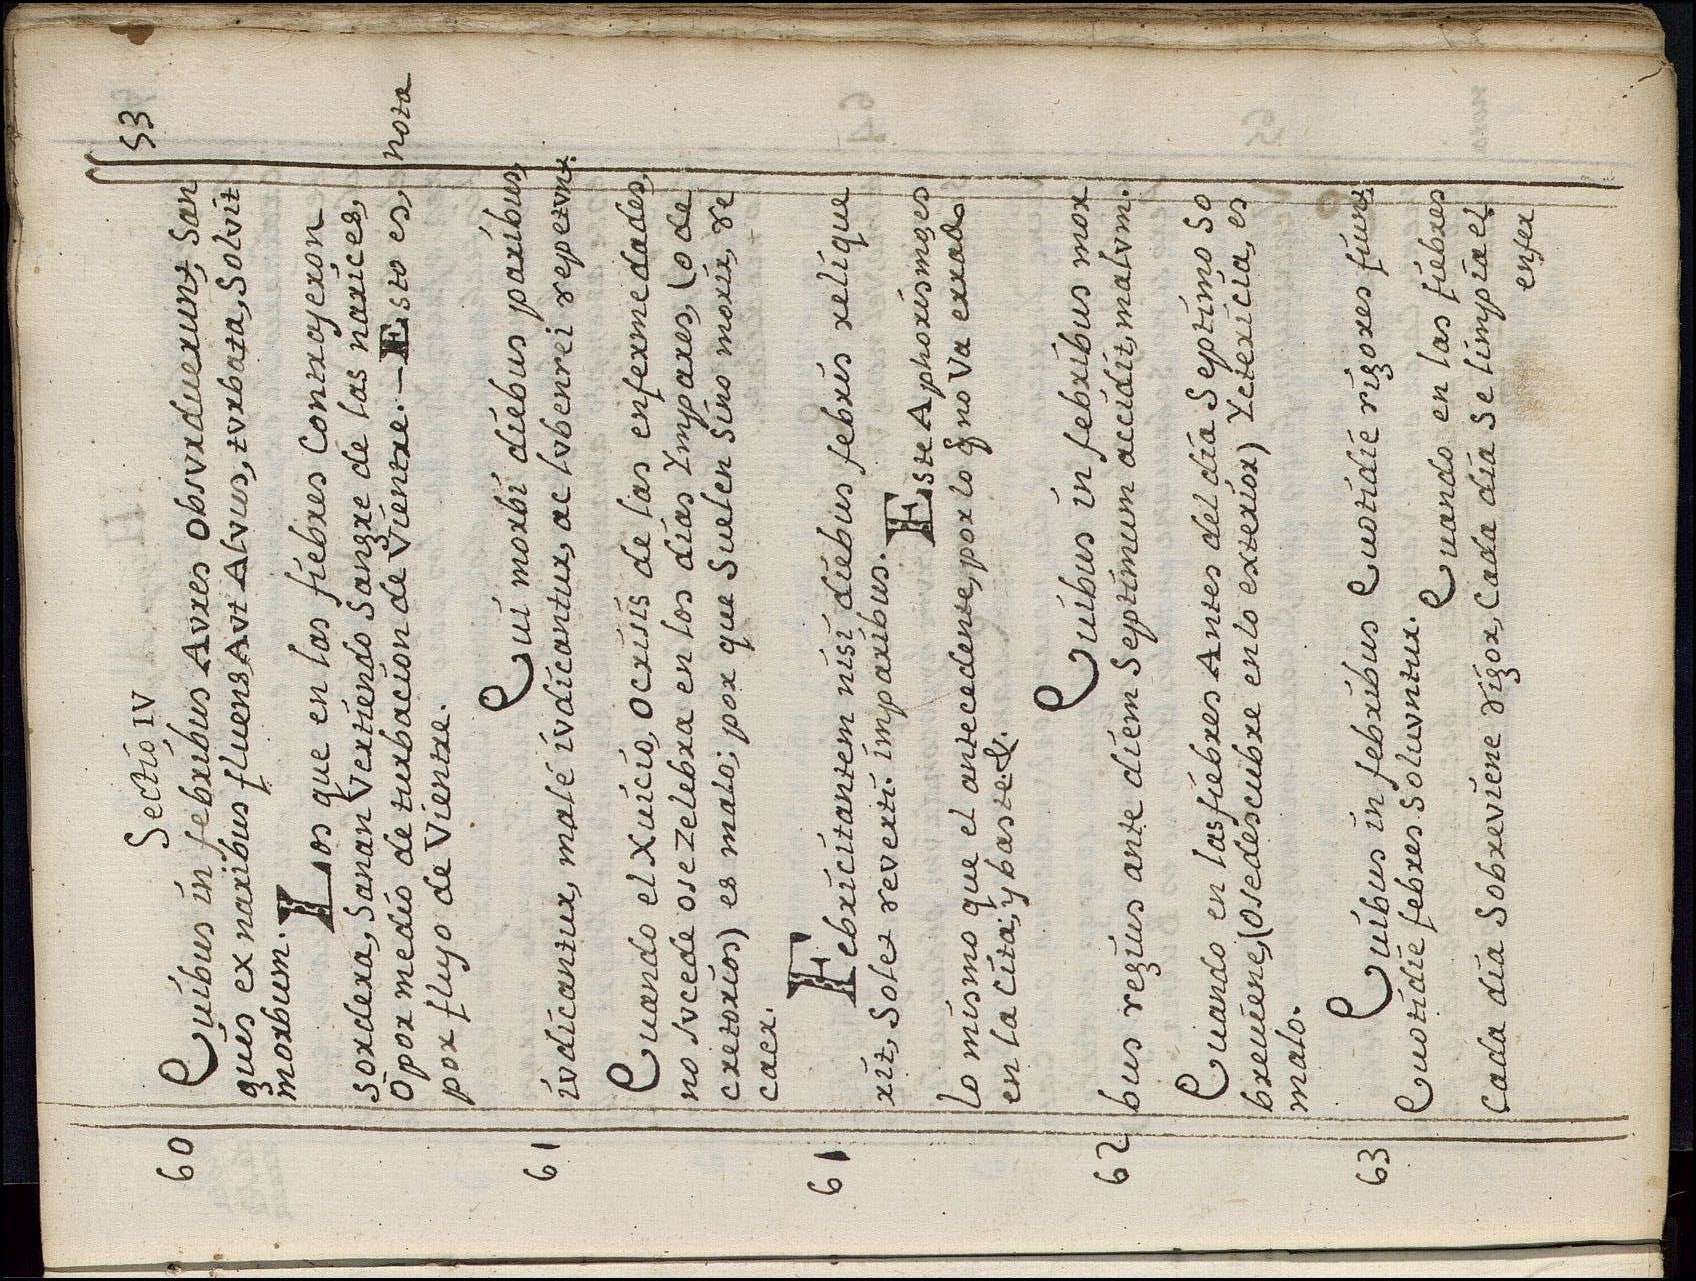 Sectio IV
53
60 Quibus in febribus Aures obsurduerunt, San
guis ex naribus fluens, Aut Alvus, turbata, Solvit
morbum.
Los que en las fiebres Contrayeron
Sordera, Sanan Vertiendo Sangre de las narices,
O por medio de turbacion de Vientre. — Esto es, nota
por fluyo de Vientre.
61 Qui morbi diebus paribus,
iudicantur, malé iudicantur, ac lubenrei repetunt.
Cuando el Xuicio, o crisis de las enfermedades,
no sucede o se zelebra en los dias Ympares, (o de
cretorios) es malo; por que Suelen Sino morir, re
caer.
61 Febricitantem nisi diebus febris relique
rit, Solet reverti. imparibus. Este Aphorismo, es
lo mismo que el antecedente, por lo q no Va exado
en la Cita; y baste. &.
62 Quibus in febribus mor
bus regius ante diem Septimum accidit, malum.
Quando en las fiebres Antes del dia Septimo So
breviene, (o se descubre en lo exterior) Yctericia, es
malo.
63 Quibus in febribus Quotidie rigores fiunt
Quotidie febres Soluuntur. Cuando en las fiebres
Cada dia Sobreviene rigor, Cada dia Se limpia el
enfer